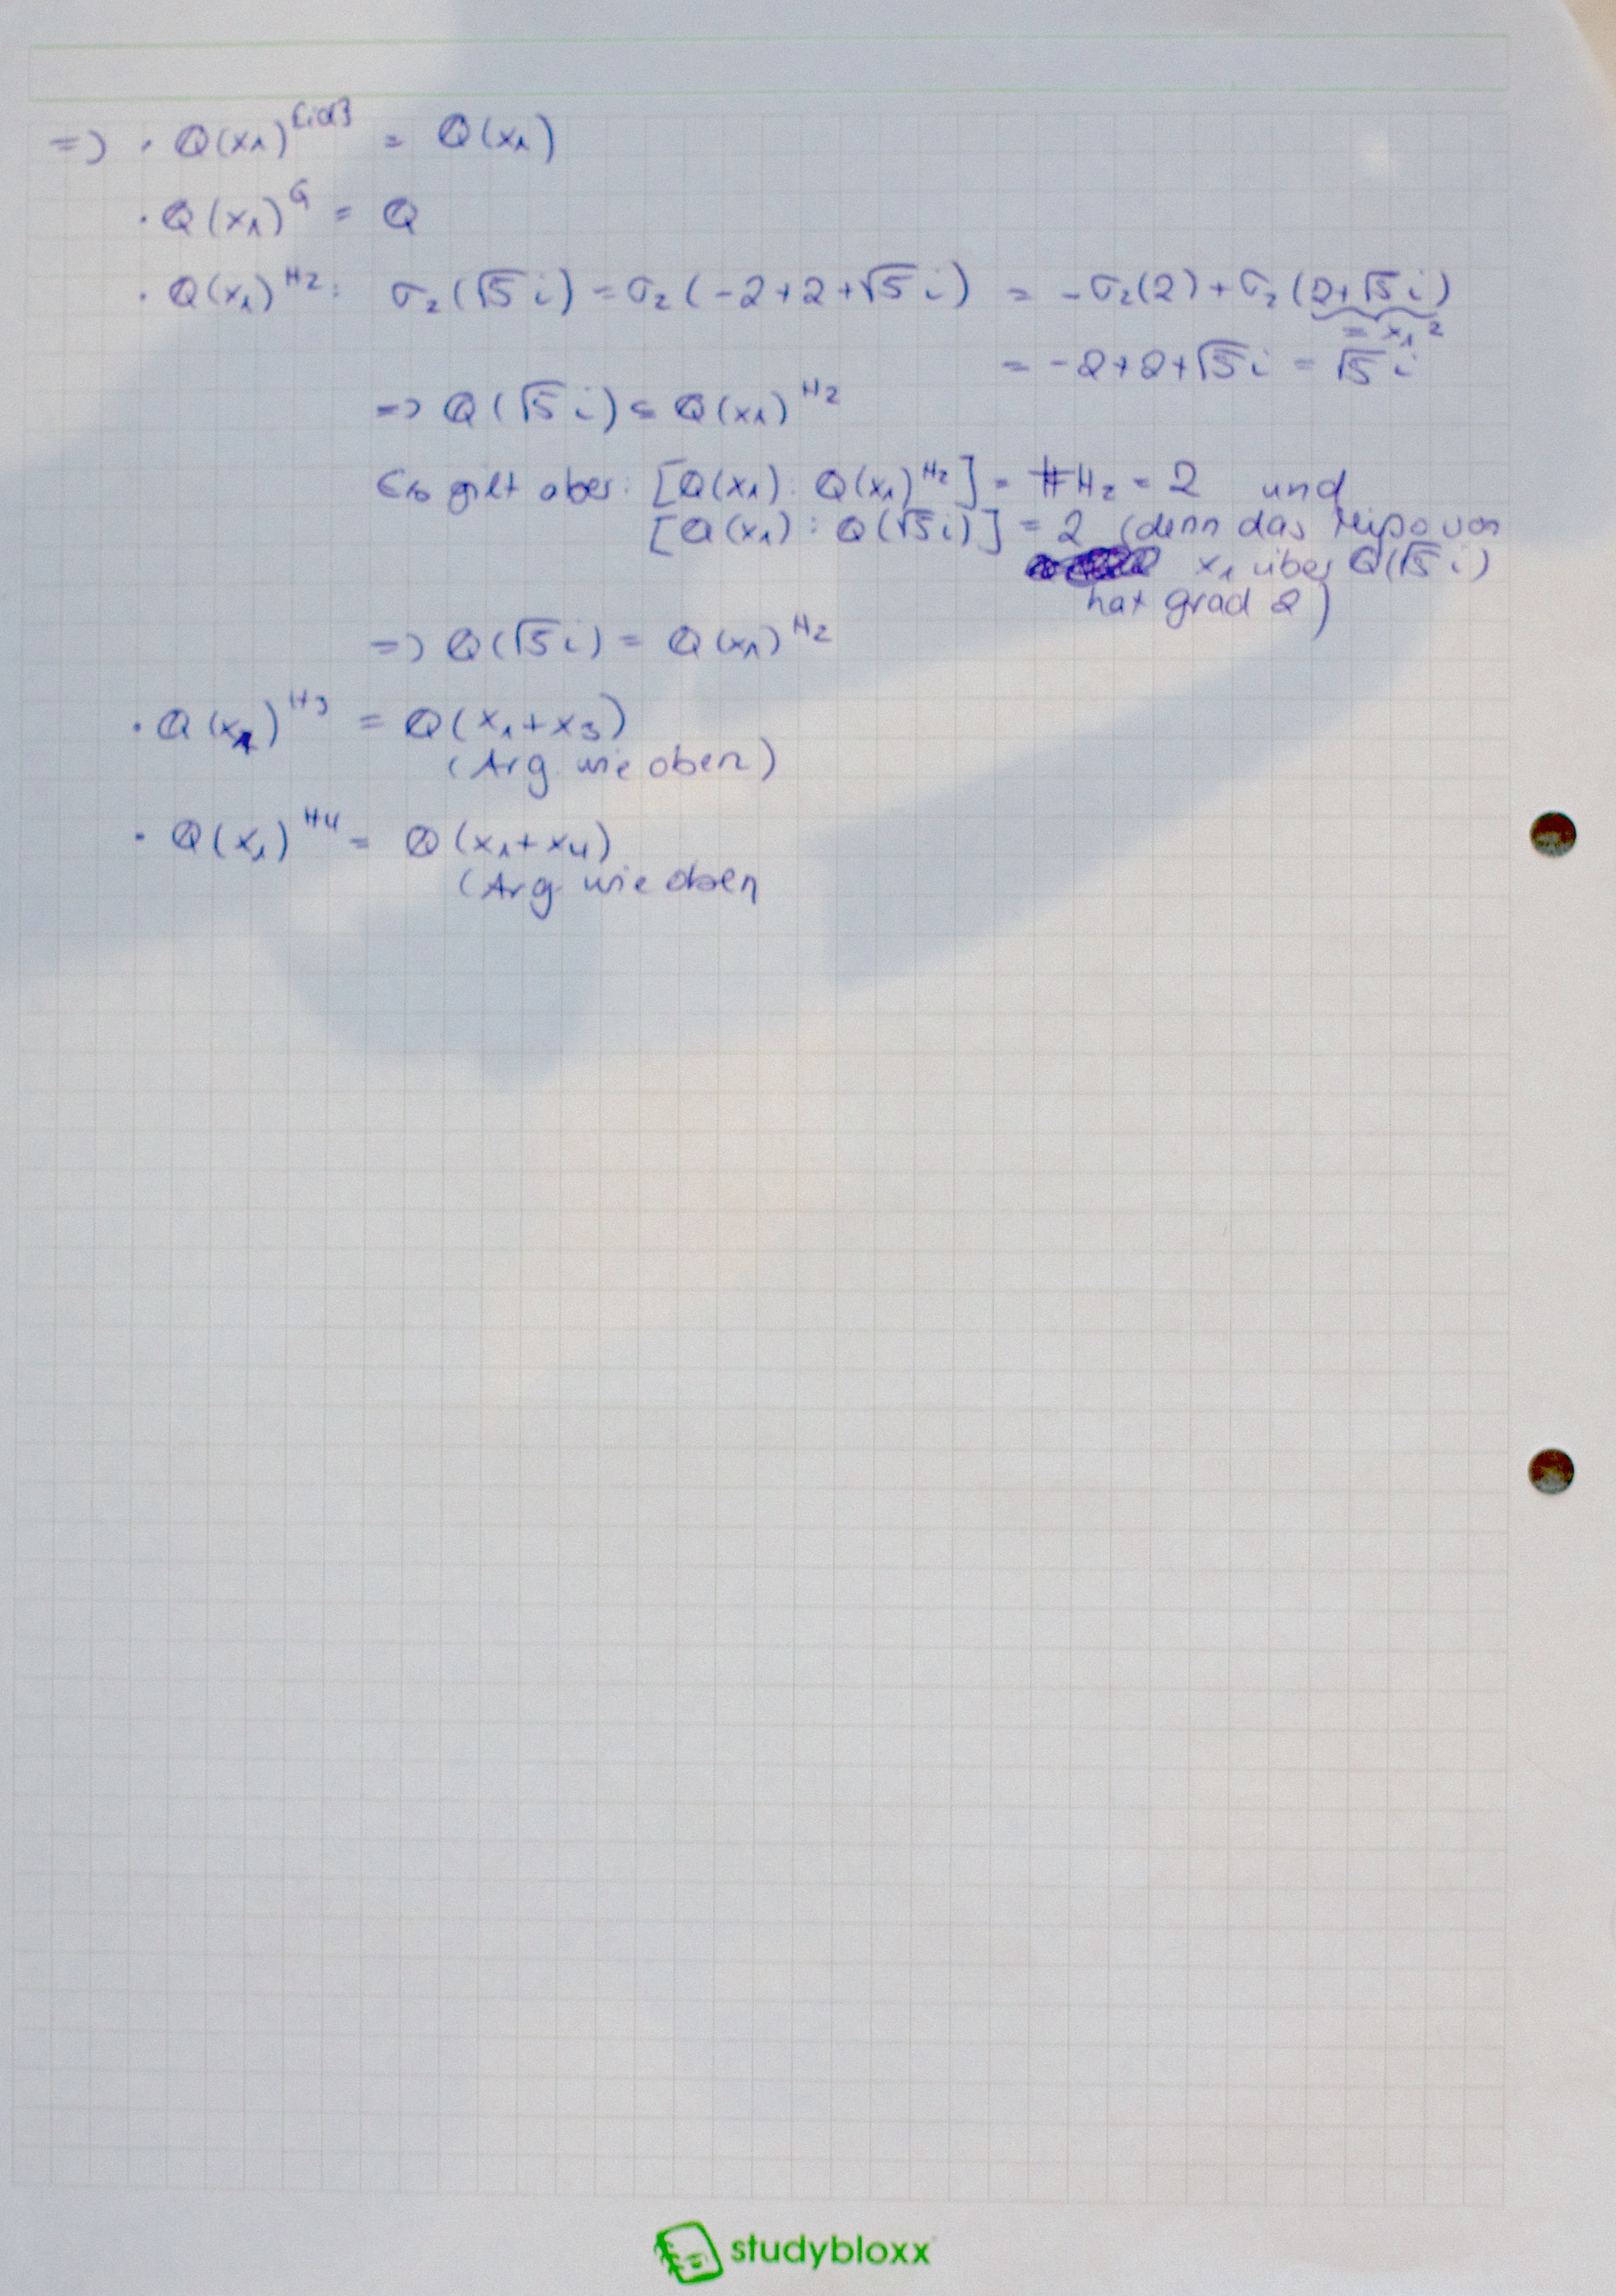 => · Q(x₁)^{id} = Q(x₁)
· Q(x₁)^G = Q
· Q(x₁)^H₂: σ₂(√5 i) = σ₂(-2+2+√5 i) = -σ₂(2)+σ₂(2+√5 i)
= x₁²
= -2+2+√5 i = √5 i
=> Q(√5 i) ⊆ Q(x₁)^H₂
Es gilt aber: [Q(x₁) : Q(x₁)^H₂] = #H₂ = 2 und
[Q(x₁) : Q(√5 i)] = 2 (denn das Mipo von
x₁ über Q(√5 i)
hat grad 2)
=> Q(√5 i) = Q(x₁)^H₂
· Q(x₁)^H₃ = Q(x₁+x₃)
(Arg. wie oben)
· Q(x₁)^H₄ = Q(x₁+x₄)
(Arg. wie oben
studybloxx